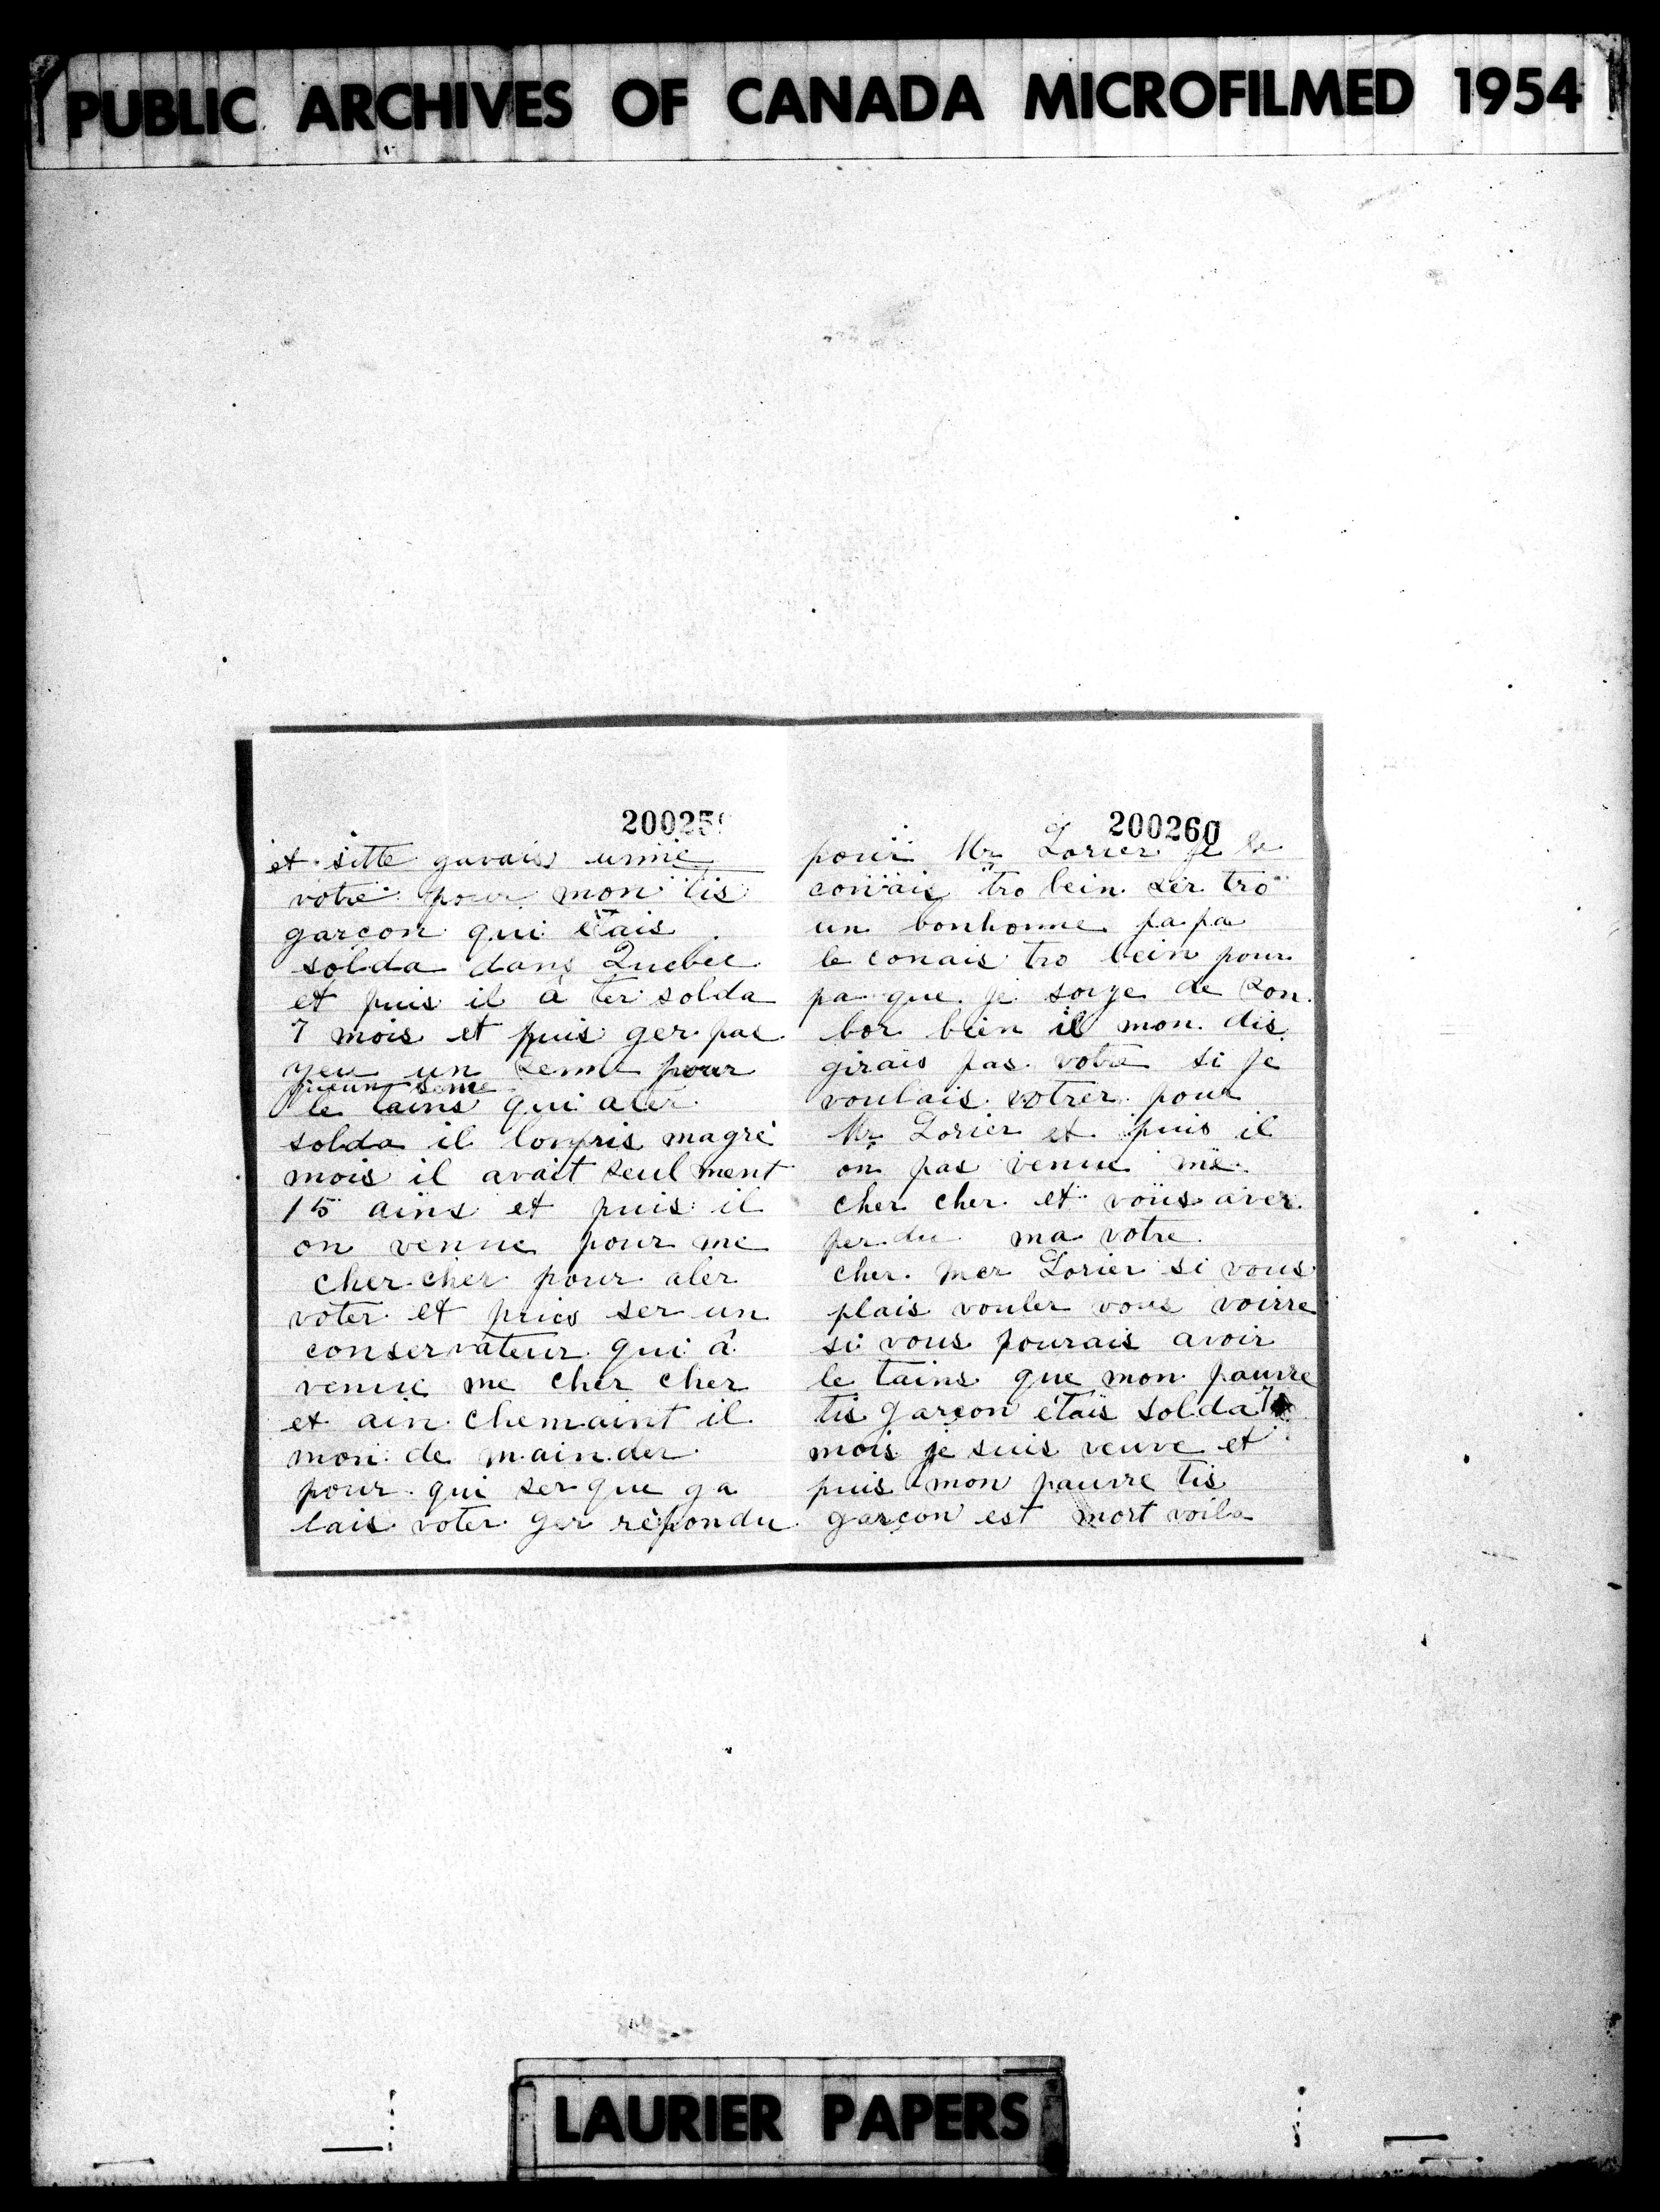 PUBLIC ARCHIVES OF CANADA MICROFILMED 1954
20025
et sitte gavais unne
votre pour mon tis
garçon qui étais
solda dans Quebec
et puis il â ter solda
7 mois et puis ger pas
yeu un senne pour
le tains qui aler
solda il lonpris magré
mois il avait seul ment
15 ains et puis il
on venue pour me
cher cher pour aler
voter et puis ser un
conservateur qui â
venue me cher cher
et ain chemaint il
mon de mainder
pour qui ser que ga
lais voter ger rèpondu
200260
pour Mr Lorier je le
conais tro bein ser tro
un bonhonme papa
le conais tro bein pour
pa que je soiye de son
bor bien il mon dis
girais pas votre si je
voulais votrer pour
Mr Lorier et puis il
on pas venue me
cher cher et vous aver
per du ma votre
cher mer Lorier si vous
plais vouler vous voirre
si vous pourais avoir
le tains que mon pauvre
tis garçon étais solda 7
mois je suis veuve et
puis mon pauvre tis
garçon est mort voila
LAURIER PAPERS